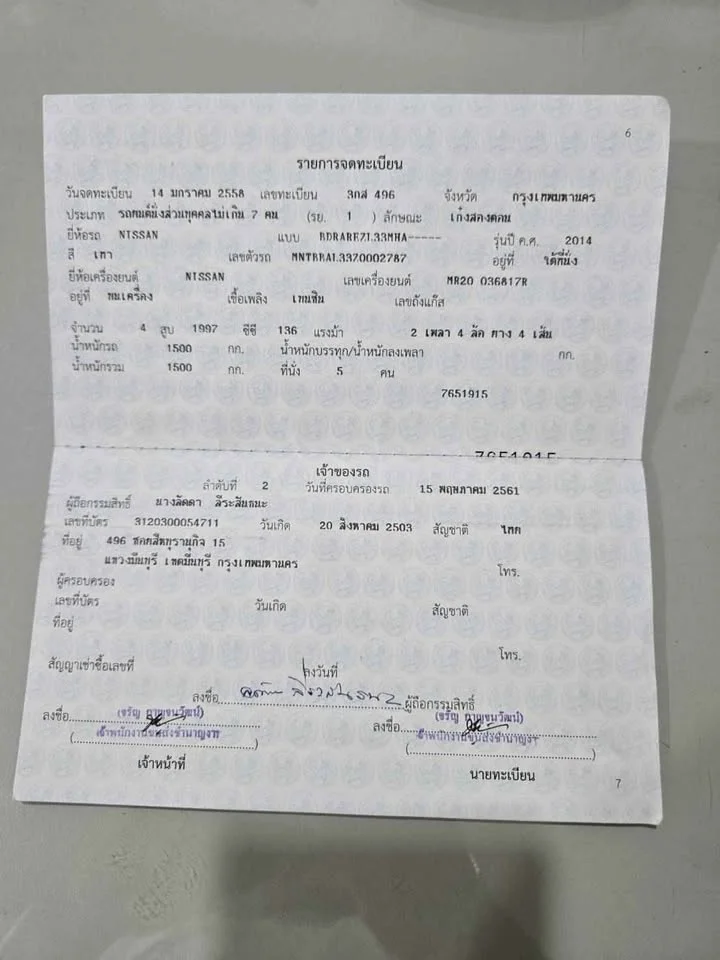 6
รายการจดทะเบียน
วันจดทะเบียน 14 มกราคม 2558 เลขทะเบียน 3กส 496 จังหวัด กรุงเทพมหานคร
ประเภท รถยนต์นั่งส่วนบุคคลไม่เกิน 7 คน (รย. 1 ) ลักษณะ เก๋งสองตอน
ยี่ห้อรถ NISSAN แบบ BDRAREZL33MHA----- รุ่นปี ค.ศ. 2014
สี เทา เลขตัวรถ MNTBBAL33Z0002787 อยู่ที่ ใต้ที่นั่ง
ยี่ห้อเครื่องยนต์ NISSAN เลขเครื่องยนต์ MR20 036817R
อยู่ที่ เชื้อเพลิง เบนซิน เลขถังแก๊ส
จำนวน 4 สูบ 1997 ซีซี 136 แรงม้า 2 เพลา 4 ล้อ ยาง 4 เส้น
น้ำหนักรถ 1500 กก. น้ำหนักบรรทุก/น้ำหนักลงเพลา กก.
น้ำหนักรวม 1500 กก. ที่นั่ง 5 คน
7651915
7651915
เจ้าของรถ
ลำดับที่ 2 วันที่ครอบครองรถ 15 พฤษภาคม 2561
ผู้ถือกรรมสิทธิ์ นางลัดดา ลีระสันธนะ
เลขที่บัตร 3120300054711 วันเกิด 20 สิงหาคม 2503 สัญชาติ ไทย
ที่อยู่ 496 ซอยสีหบุรานุกิจ 15
แขวงมีนบุรี เขตมีนบุรี กรุงเทพมหานคร
โทร.
ผู้ครอบครอง
เลขที่บัตร วันเกิด สัญชาติ
ที่อยู่
โทร.
สัญญาเช่าซื้อเลขที่ ลงวันที่
ลงชื่อ ผู้ถือกรรมสิทธิ์
ลงชื่อ (จรัญ กาญจนวัฒน์) ลงชื่อ (จรัญ กาญจนวัฒน์)
เจ้าพนักงานขนส่งชำนาญงาน เจ้าพนักงานขนส่งชำนาญงาน
เจ้าหน้าที่ นายทะเบียน
7